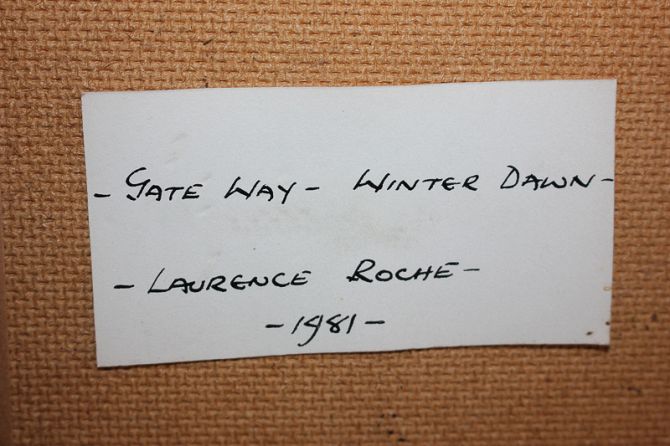 - GATE WAY - WINTER DAWN -
- LAURENCE ROCHE -
- 1981 -